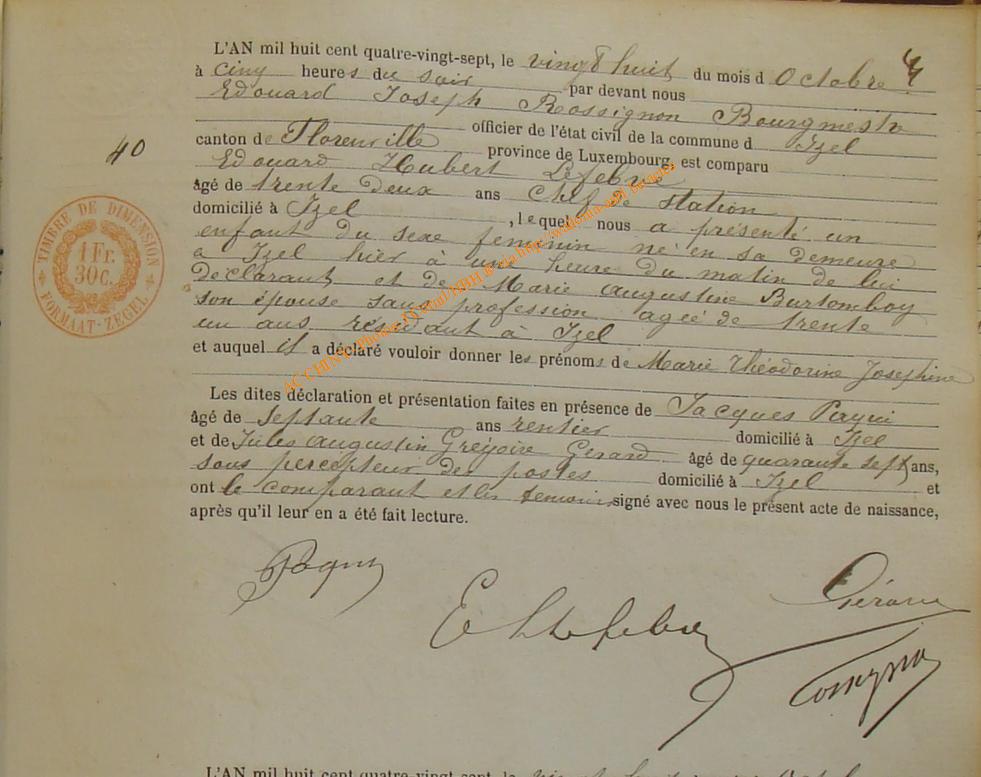 L'AN mil huit cent quatre-vingt-sept, le vingt huit du mois d'Octobre
à cinq heures du soir par devant nous
Edouard Joseph Rossignon Bourgmestre
officier de l'état civil de la commune d Izel
canton de Florenville province de Luxembourg, est comparu
Edouard Hubert Lefebvre
âgé de trente deux ans Chef de station
domicilié à Izel , lequel nous a présenté un
enfant du sexe feminin né en sa demeure
a Izel hier à une heure du matin de lui
déclarant et de Marie Augustine Burtomboy
son épouse sans profession agée de trente
un ans résidant à Izel
et auquel il a déclaré vouloir donner les prénoms de Marie Théodorine Josephine
Les dites déclaration et présentation faites en présence de Jacques
âgé de septante ans rentier domicilié à Izel
et de Jules Augustin Grégoire Gerard âgé de quarante sept ans,
sous percepteur des postes domicilié à Izel et
ont le comparant et les temoins signé avec nous le présent acte de naissance,
après qu'il leur en a été fait lecture.
40
TIMBRE DE DIMENSION
1 Fr.
30c.
FORMAAT-ZEGEL
Gérard
L'AN mil huit cent quatre-vingt-sept, le